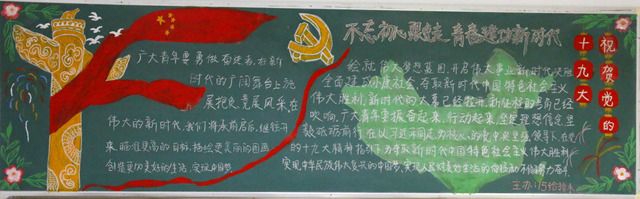 不忘初心跟党走 青春建功新时代
祝贺党的
十九大
广大青年要勇做奋进者,在新
时代的广阔舞台上施
展抱负竞展风采,在
伟大的新时代,我们将承前启后,继往开
来,瞄准更高的目标,描绘更美丽的画面
创造更加美好的生活,实现中国梦
绘就伟大梦想蓝图,开启伟大事业新时代,决胜
全面建成小康社会,夺取新时代中国特色社会主义
伟大胜利,新时代的大幕已经拉开,新征程的号角已经
吹响,广大青年要振奋起来,行动起来,坚定理想信念
在以习近平同志为核心的党中央坚强领导下,在党
的十九大精神指引下,为夺取新时代中国特色社会主义伟大胜利
实现中华民族伟大复兴的中国梦,实现人民对美好生活的向往而不懈努力奋斗
主办: